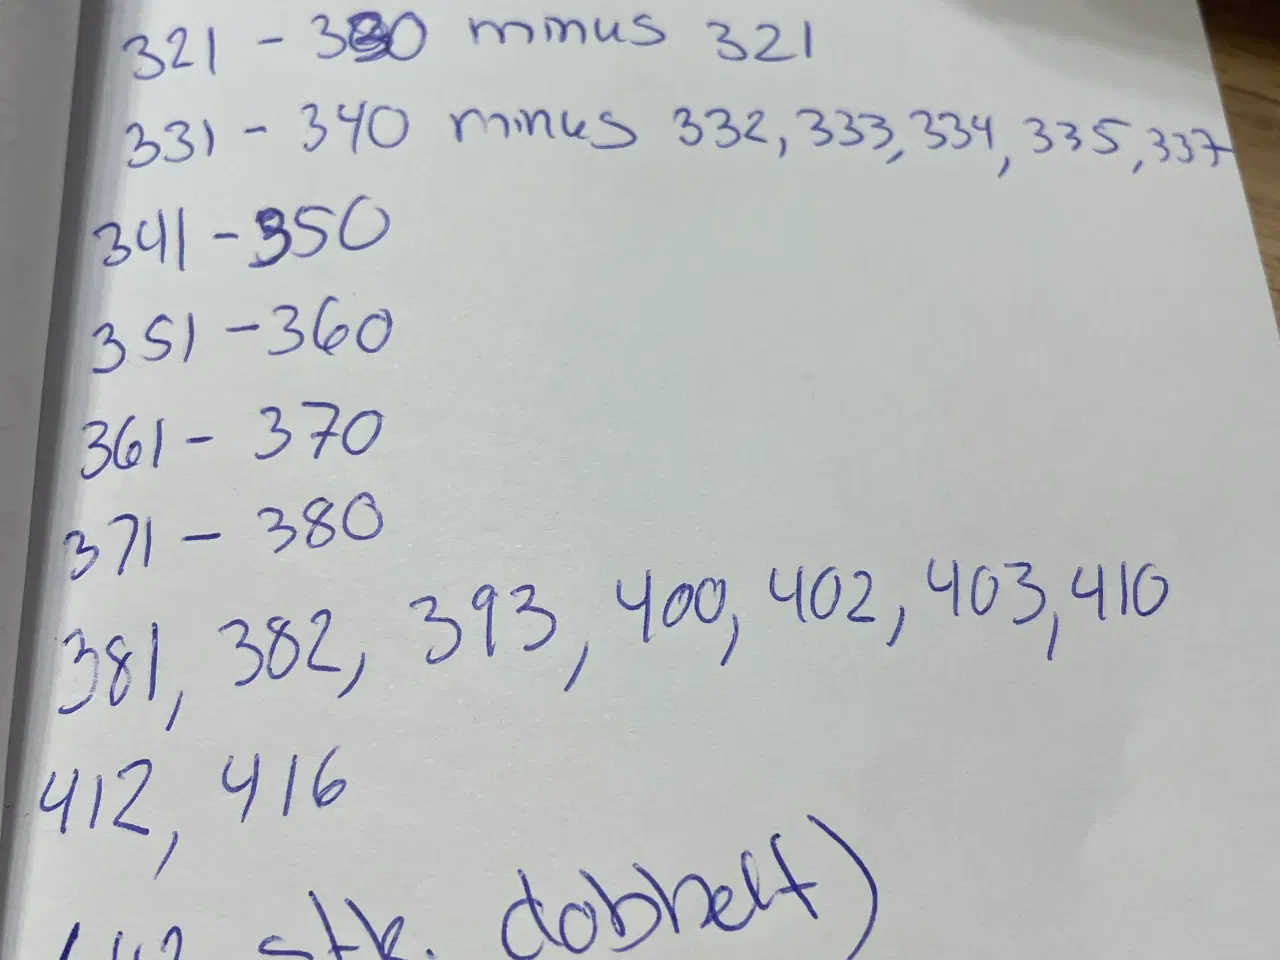 321 - 330 minus 321
331 - 340 minus 332, 333, 334, 335, 337
341 - 350
351 - 360
361 - 370
371 - 380
381, 382, 393, 400, 402, 403, 410
412, 416
stk. dobbelt)